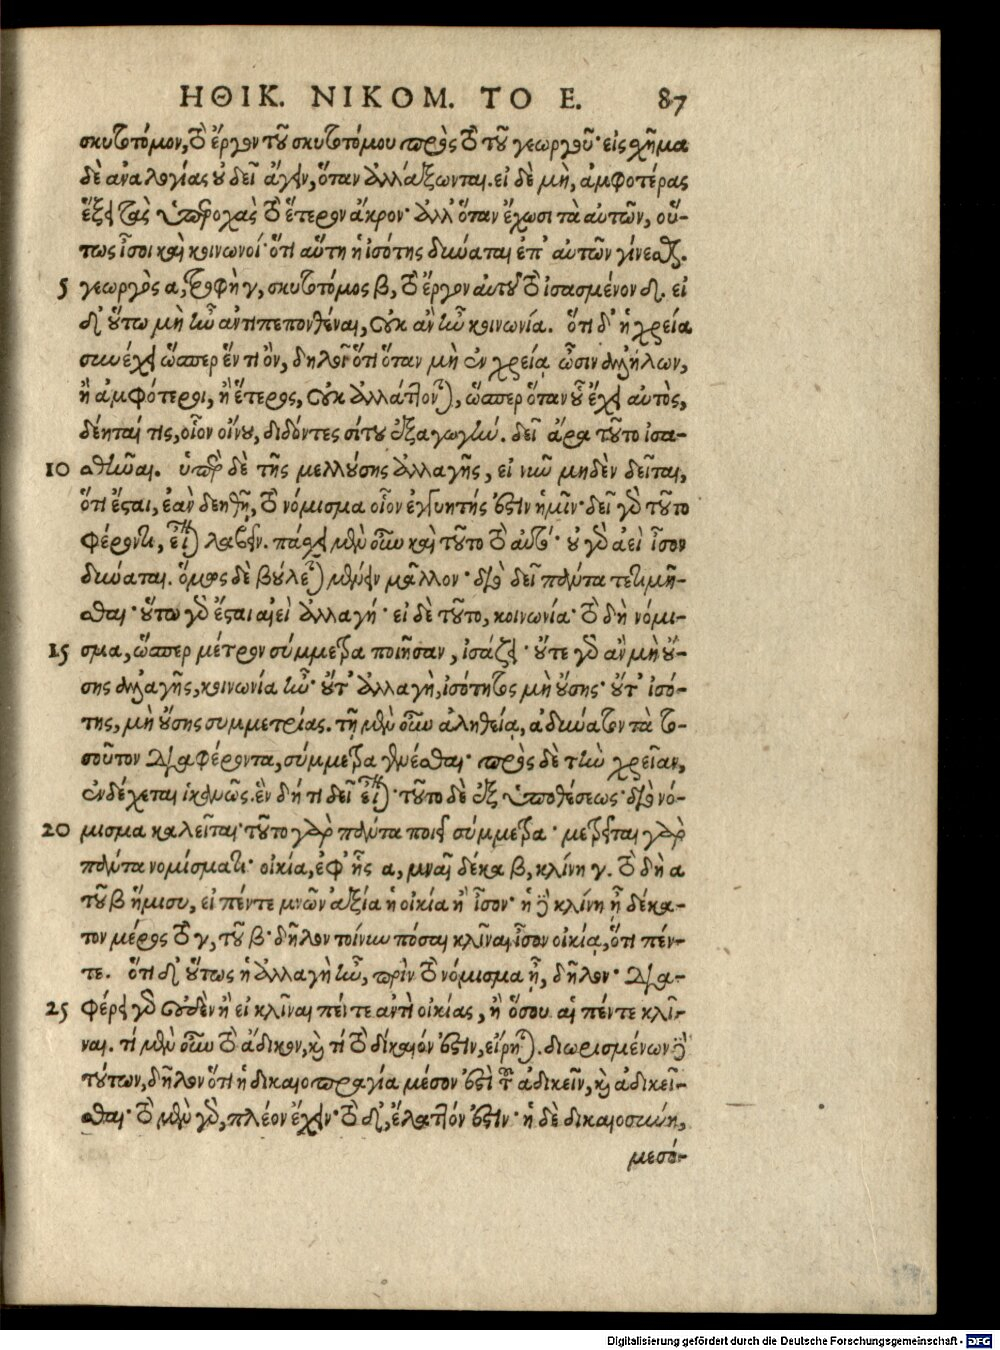 ΗΘΙΚ. ΝΙΚΟΜ. ΤΟ Ε. 87
σκυτοτόμον, τὸ ἔργον τοῦ σκυτοτόμου πρὸς τὸ τοῦ γεωργοῦ· εἰς χῆμα
δὲ ἀναλογίας οὐ δεῖ ἄγειν, ὅταν ἀλλάξωνται. εἰ δὲ μὴ, ἀμφοτέρας
ἕξει τὰς ὑπεροχὰς τὸ ἕτερον ἄκρον· ἀλλ' ὅταν ἔχωσι τὰ αὑτῶν, οὕ-
τως ἴσοι καὶ κοινωνοί· ὅτι αὕτη ἡ ἰσότης δύναται ἐπ' αὐτῶν γίνεσθαι.
5 γεωργὸς α, τροφὴ γ, σκυτοτόμος β, τὸ ἔργον αὐτοῦ τὸ ἰσασμένον δ. εἰ
δ' οὕτω μὴ ἦν ἀντιπεπονθέναι, οὐκ ἂν ἦν κοινωνία. ὅτι δ' ἡ χρεία
συνέχει ὥσπερ ἕν τι ὂν, δηλοῖ ὅτι ὅταν μὴ ἐν χρείᾳ ὦσιν ἀλλήλων,
ἢ ἀμφότεροι, ἢ ἕτερος, οὐκ ἀλλάττονται, ὥσπερ ὅταν οὗ ἔχει αὐτὸς,
δέηταί τις, οἷον οἴνου, διδόντες σίτου ἐξαγωγήν. δεῖ ἄρα τοῦτο ἰσα-
10 σθῆναι. ὑπὲρ δὲ τῆς μελλούσης ἀλλαγῆς, εἰ νῦν μηδὲν δεῖται,
ὅτι ἔσται, ἐὰν δεηθῇ, τὸ νόμισμα οἷον ἐγγυητής ἐστιν ἡμῖν· δεῖ γὰρ τοῦτο
φέροντι, εἶναι λαβεῖν. πάσχει μὲν οὖν καὶ τοῦτο τὸ αὐτό· οὐ γὰρ ἀεὶ ἴσον
δύναται. ὅμως δὲ βούλεται μένειν μᾶλλον· διὸ δεῖ πάντα τετιμῆ-
σθαι· οὕτω γὰρ ἔσται αἰεὶ ἀλλαγή· εἰ δὲ τοῦτο, κοινωνία· τὸ δὴ νόμι-
15 σμα, ὥσπερ μέτρον σύμμετρα ποιῆσαν, ἰσάζει· οὔτε γὰρ ἂν μὴ οὔ-
σης ἀλλαγῆς, κοινωνία ἦν· οὔτ' ἀλλαγὴ, ἰσότητος μὴ οὔσης· οὔτ' ἰσό-
της, μὴ οὔσης συμμετρίας. τῇ μὲν οὖν ἀληθείᾳ, ἀδύνατον τὰ το-
σοῦτον διαφέροντα, σύμμετρα γενέσθαι· πρὸς δὲ τὴν χρείαν,
ἐνδέχεται ἱκανῶς. ἓν δή τι δεῖ εἶναι· τοῦτο δὲ ἐξ ὑποθέσεως· διὸ νό-
20 μισμα καλεῖται· τοῦτο γὰρ πάντα ποιεῖ σύμμετρα· μετρεῖται γὰρ
πάντα νομίσματι· οἰκία, ἐφ' ἧς α, μναῖ δέκα β, κλίνη γ. τὸ δὴ α
τοῦ β ἥμισυ, εἰ πέντε μνῶν ἀξία ἡ οἰκία ἢ ἴσον· ἡ δὲ κλίνη ᾖ δέκα-
τον μέρος τὸ γ, τοῦ β· δῆλον τοίνυν πόσαι κλῖναι ἴσον οἰκίᾳ, ὅτι πέν-
τε. ὅτι δ' οὕτως ἡ ἀλλαγὴ ἦν, πρὶν τὸ νόμισμα ᾖ, δῆλον· δια-
25 φέρει γὰρ οὐδὲν ἢ εἰ κλῖναι πέντε ἀντὶ οἰκίας, ἢ ὅσου αἱ πέντε κλῖ-
ναι. τί μὲν οὖν τὸ ἄδικον, καὶ τί τὸ δίκαιόν ἐστιν, εἴρηται. διωρισμένων δὲ
τούτων, δῆλον ὅτι ἡ δικαιοπραγία μέσον ἐστὶ τοῦ ἀδικεῖν, καὶ ἀδικεῖ-
σθαι· τὸ μὲν γὰρ, πλέον ἔχειν· τὸ δ', ἔλαττόν ἐστιν· ἡ δὲ δικαιοσύνη,
μεσό-
Digitalisierung gefördert durch die Deutsche Forschungsgemeinschaft - DFG